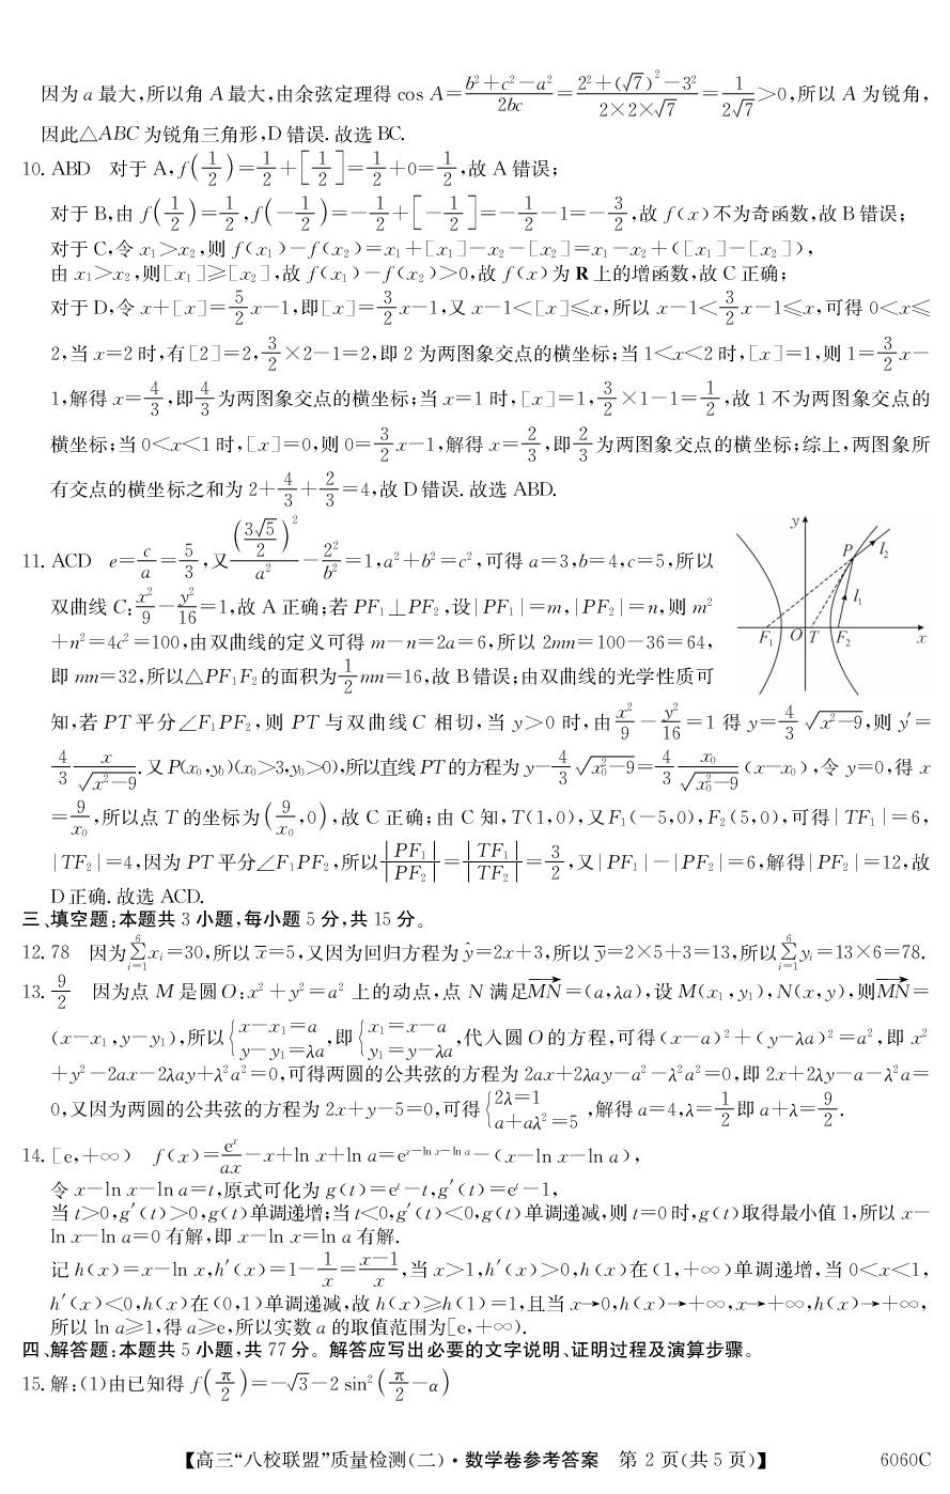 因为 a 最大,所以角 A 最大,由余弦定理得 cos A=\frac{b²+c²-a²}{2bc}=\frac{2²+(√7)²-3²}{2×2×√7}=\frac{1}{2√7}>0,所以 A 为锐角,
因此△ABC 为锐角三角形,D 错误.故选 BC.
10. ABD 对于 A,f(\frac{1}{2})=\frac{1}{2}+[\frac{1}{2}]=\frac{1}{2}+0=\frac{1}{2},故 A 错误;
对于 B,由 f(\frac{1}{2})=\frac{1}{2},f(-\frac{1}{2})=-\frac{1}{2}+[-\frac{1}{2}]=-\frac{1}{2}-1=-\frac{3}{2},故 f(x)不为奇函数,故 B 错误;
对于 C,令 x₁>x₂,则 f(x₁)-f(x₂)=x₁+[x₁]-x₂-[x₂]=x₁-x₂+([x₁]-[x₂]),
由 x₁>x₂,则[x₁]≥[x₂],故 f(x₁)-f(x₂)>0,故 f(x)为 R 上的增函数,故 C 正确;
对于 D,令 x+[x]=\frac{5}{2}x-1,即[x]=\frac{3}{2}x-1,又 x-1<[x]≤x,所以 x-1<\frac{3}{2}x-1≤x,可得 0<x≤
2,当 x=2 时,有[2]=2,\frac{3}{2}×2-1=2,即 2 为两图象交点的横坐标;当 1<x<2 时,[x]=1,则 1=\frac{3}{2}x-
1,解得 x=\frac{4}{3},即\frac{4}{3}为两图象交点的横坐标;当 x=1 时,[x]=1,\frac{3}{2}×1-1=\frac{1}{2},故 1 不为两图象交点的
横坐标;当 0<x<1 时,[x]=0,则 0=\frac{3}{2}x-1,解得 x=\frac{2}{3},即\frac{2}{3}为两图象交点的横坐标;综上,两图象所
有交点的横坐标之和为 2+\frac{4}{3}+\frac{2}{3}=4,故 D 错误.故选 ABD.
11. ACD e=\frac{c}{a}=\frac{5}{3},又\frac{(\frac{3√5}{2})²}{a²}-\frac{2²}{b²}=1,a²+b²=c²,可得 a=3,b=4,c=5,所以
双曲线 C:\frac{x²}{9}-\frac{y²}{16}=1,故 A 正确;若 PF₁⊥PF₂,设|PF₁|=m,|PF₂|=n,则 m²
+n²=4c²=100,由双曲线的定义可得 m-n=2a=6,所以 2mn=100-36=64,
即 mn=32,所以△PF₁F₂的面积为\frac{1}{2}mn=16,故 B 错误;由双曲线的光学性质可
y
P
l₂
l₁
F₁
O
T
F₂
x
知,若 PT 平分∠F₁PF₂,则 PT 与双曲线 C 相切,当 y>0 时,由\frac{x²}{9}-\frac{y²}{16}=1 得 y=\frac{4}{3}√(x²-9),则 y′=
\frac{4}{3}\frac{x}{√(x²-9)}.又 P(x₀,y₀)(x₀>3,y₀>0),所以直线 PT 的方程为 y-\frac{4}{3}√(x₀²-9)=\frac{4}{3}\frac{x₀}{√(x₀²-9)}(x-x₀),令 y=0,得 x
=\frac{9}{x₀},所以点 T 的坐标为(\frac{9}{x₀},0),故 C 正确;由 C 知,T(1,0),又 F₁(-5,0),F₂(5,0),可得|TF₁|=6,
|TF₂|=4,因为 PT 平分∠F₁PF₂,所以\frac{|PF₁|}{|PF₂|}=\frac{|TF₁|}{|TF₂|}=\frac{3}{2},又|PF₁|-|PF₂|=6,解得|PF₂|=12,故
D 正确.故选 ACD.
三、填空题:本题共 3 小题,每小题 5 分,共 15 分。
12. 78 因为\sum_{i=1}^{6}xᵢ=30,所以 x̄=5,又因为回归方程为 ŷ=2x+3,所以 ȳ=2×5+3=13,所以\sum_{i=1}^{6}yᵢ=13×6=78.
13. \frac{9}{2} 因为点 M 是圆 O:x²+y²=a² 上的动点,点 N 满足\overrightarrow{MN}=(a,λa),设 M(x₁,y₁),N(x,y),则\overrightarrow{MN}=
(x-x₁,y-y₁),所以{x-x₁=a, y-y₁=λa,即{x₁=x-a, y₁=y-λa,代入圆 O 的方程,可得(x-a)²+(y-λa)²=a²,即 x²
+y²-2ax-2λay+λ²a²=0,可得两圆的公共弦的方程为 2ax+2λay-a²-λ²a²=0,即 2x+2λy-a-λ²a=
0,又因为两圆的公共弦的方程为 2x+y-5=0,可得{2λ=1, a+aλ²=5,解得 a=4,λ=\frac{1}{2}即 a+λ=\frac{9}{2}.
14. [e,+∞) f(x)=\frac{eˣ}{ax}-x+ln x+ln a=e^{x-ln x-ln a}-(x-ln x-ln a),
令 x-ln x-ln a=t,原式可化为 g(t)=eᵗ-t,g′(t)=eᵗ-1,
当 t>0,g′(t)>0,g(t)单调递增;当 t<0,g′(t)<0,g(t)单调递减,则 t=0 时,g(t)取得最小值 1,所以 x-
ln x-ln a=0 有解,即 x-ln x=ln a 有解.
记 h(x)=x-ln x,h′(x)=1-\frac{1}{x}=\frac{x-1}{x},当 x>1,h′(x)>0,h(x)在(1,+∞)单调递增,当 0<x<1,
h′(x)<0,h(x)在(0,1)单调递减,故 h(x)≥h(1)=1,且当 x→0,h(x)→+∞,x→+∞,h(x)→+∞,
所以 ln a≥1,得 a≥e,所以实数 a 的取值范围为[e,+∞).
四、解答题:本题共 5 小题,共 77 分。解答应写出必要的文字说明、证明过程及演算步骤。
15. 解:(1)由已知得 f(\frac{π}{2})=-√3-2 sin²(\frac{π}{2}-α)
【高三“八校联盟”质量检测(二)·数学卷参考答案 第 2 页(共 5 页)】 6060C